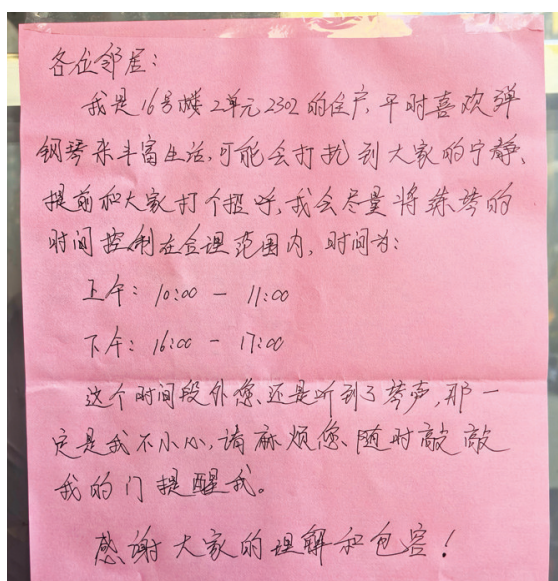 各位邻居：
我是16号楼2单元2302的住户，平时喜欢弹
钢琴来丰富生活，可能会打扰到大家的宁静、
提前和大家打个招呼，我会尽量将练琴的
时间控制在合理范围内，时间为：
上午：10:00 — 11:00
下午：16:00 — 17:00
这个时间段外您还是听到了琴声，那一
定是我不小心，请麻烦您随时敲敲
我的门提醒我。
感谢大家的理解和包容！